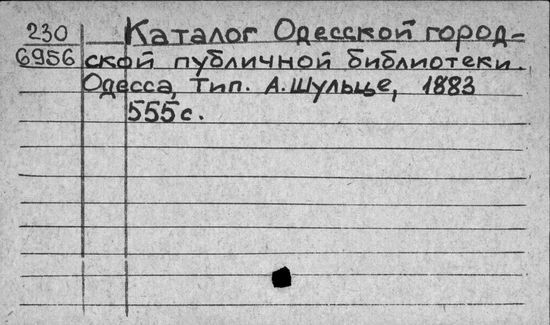 230 Каталог Одесской город-
6956 ской публичной библиотеки.
Одесса, Тип. А. Шульце, 1883
555 с.